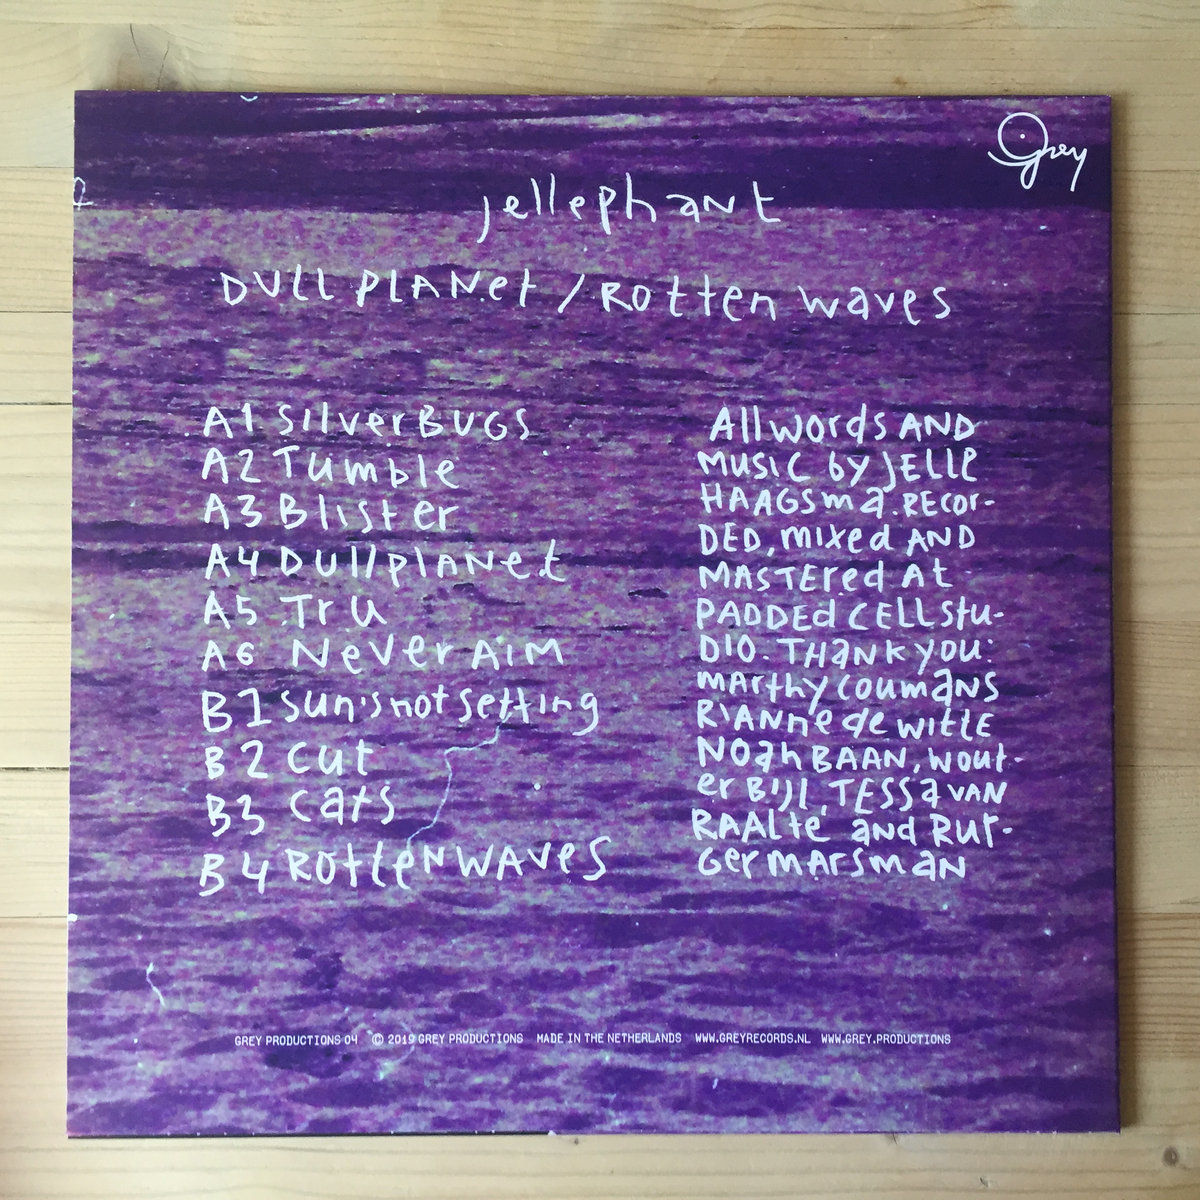 Grey
jellephant
DULL PLANet / Rotten waves
A1 SilverBUGS
A2 Tumble
A3 Blister
A4 Dull planet
A5 Tru
A6 Never AIM
B1 Sun's not setting
B2 cut
B3 cats
B4 Rotten WAVES
All words AND
MUSIC by JELLE
HAAGSma. RECOR-
DED, mixed AND
MASTEred At
PADDEd CELL stu-
DIO. THaNK you:
MARthy COUMANS
RIANNe de WITTE
NOah BAAN, Wout-
er BIJL, TESSa VAN
RAALte and Rut-
Ger MARSMAN
GREY PRODUCTIONS 04 © 2019 GREY PRODUCTIONS MADE IN THE NETHERLANDS WWW.GREYRECORDS.NL WWW.GREY.PRODUCTIONS